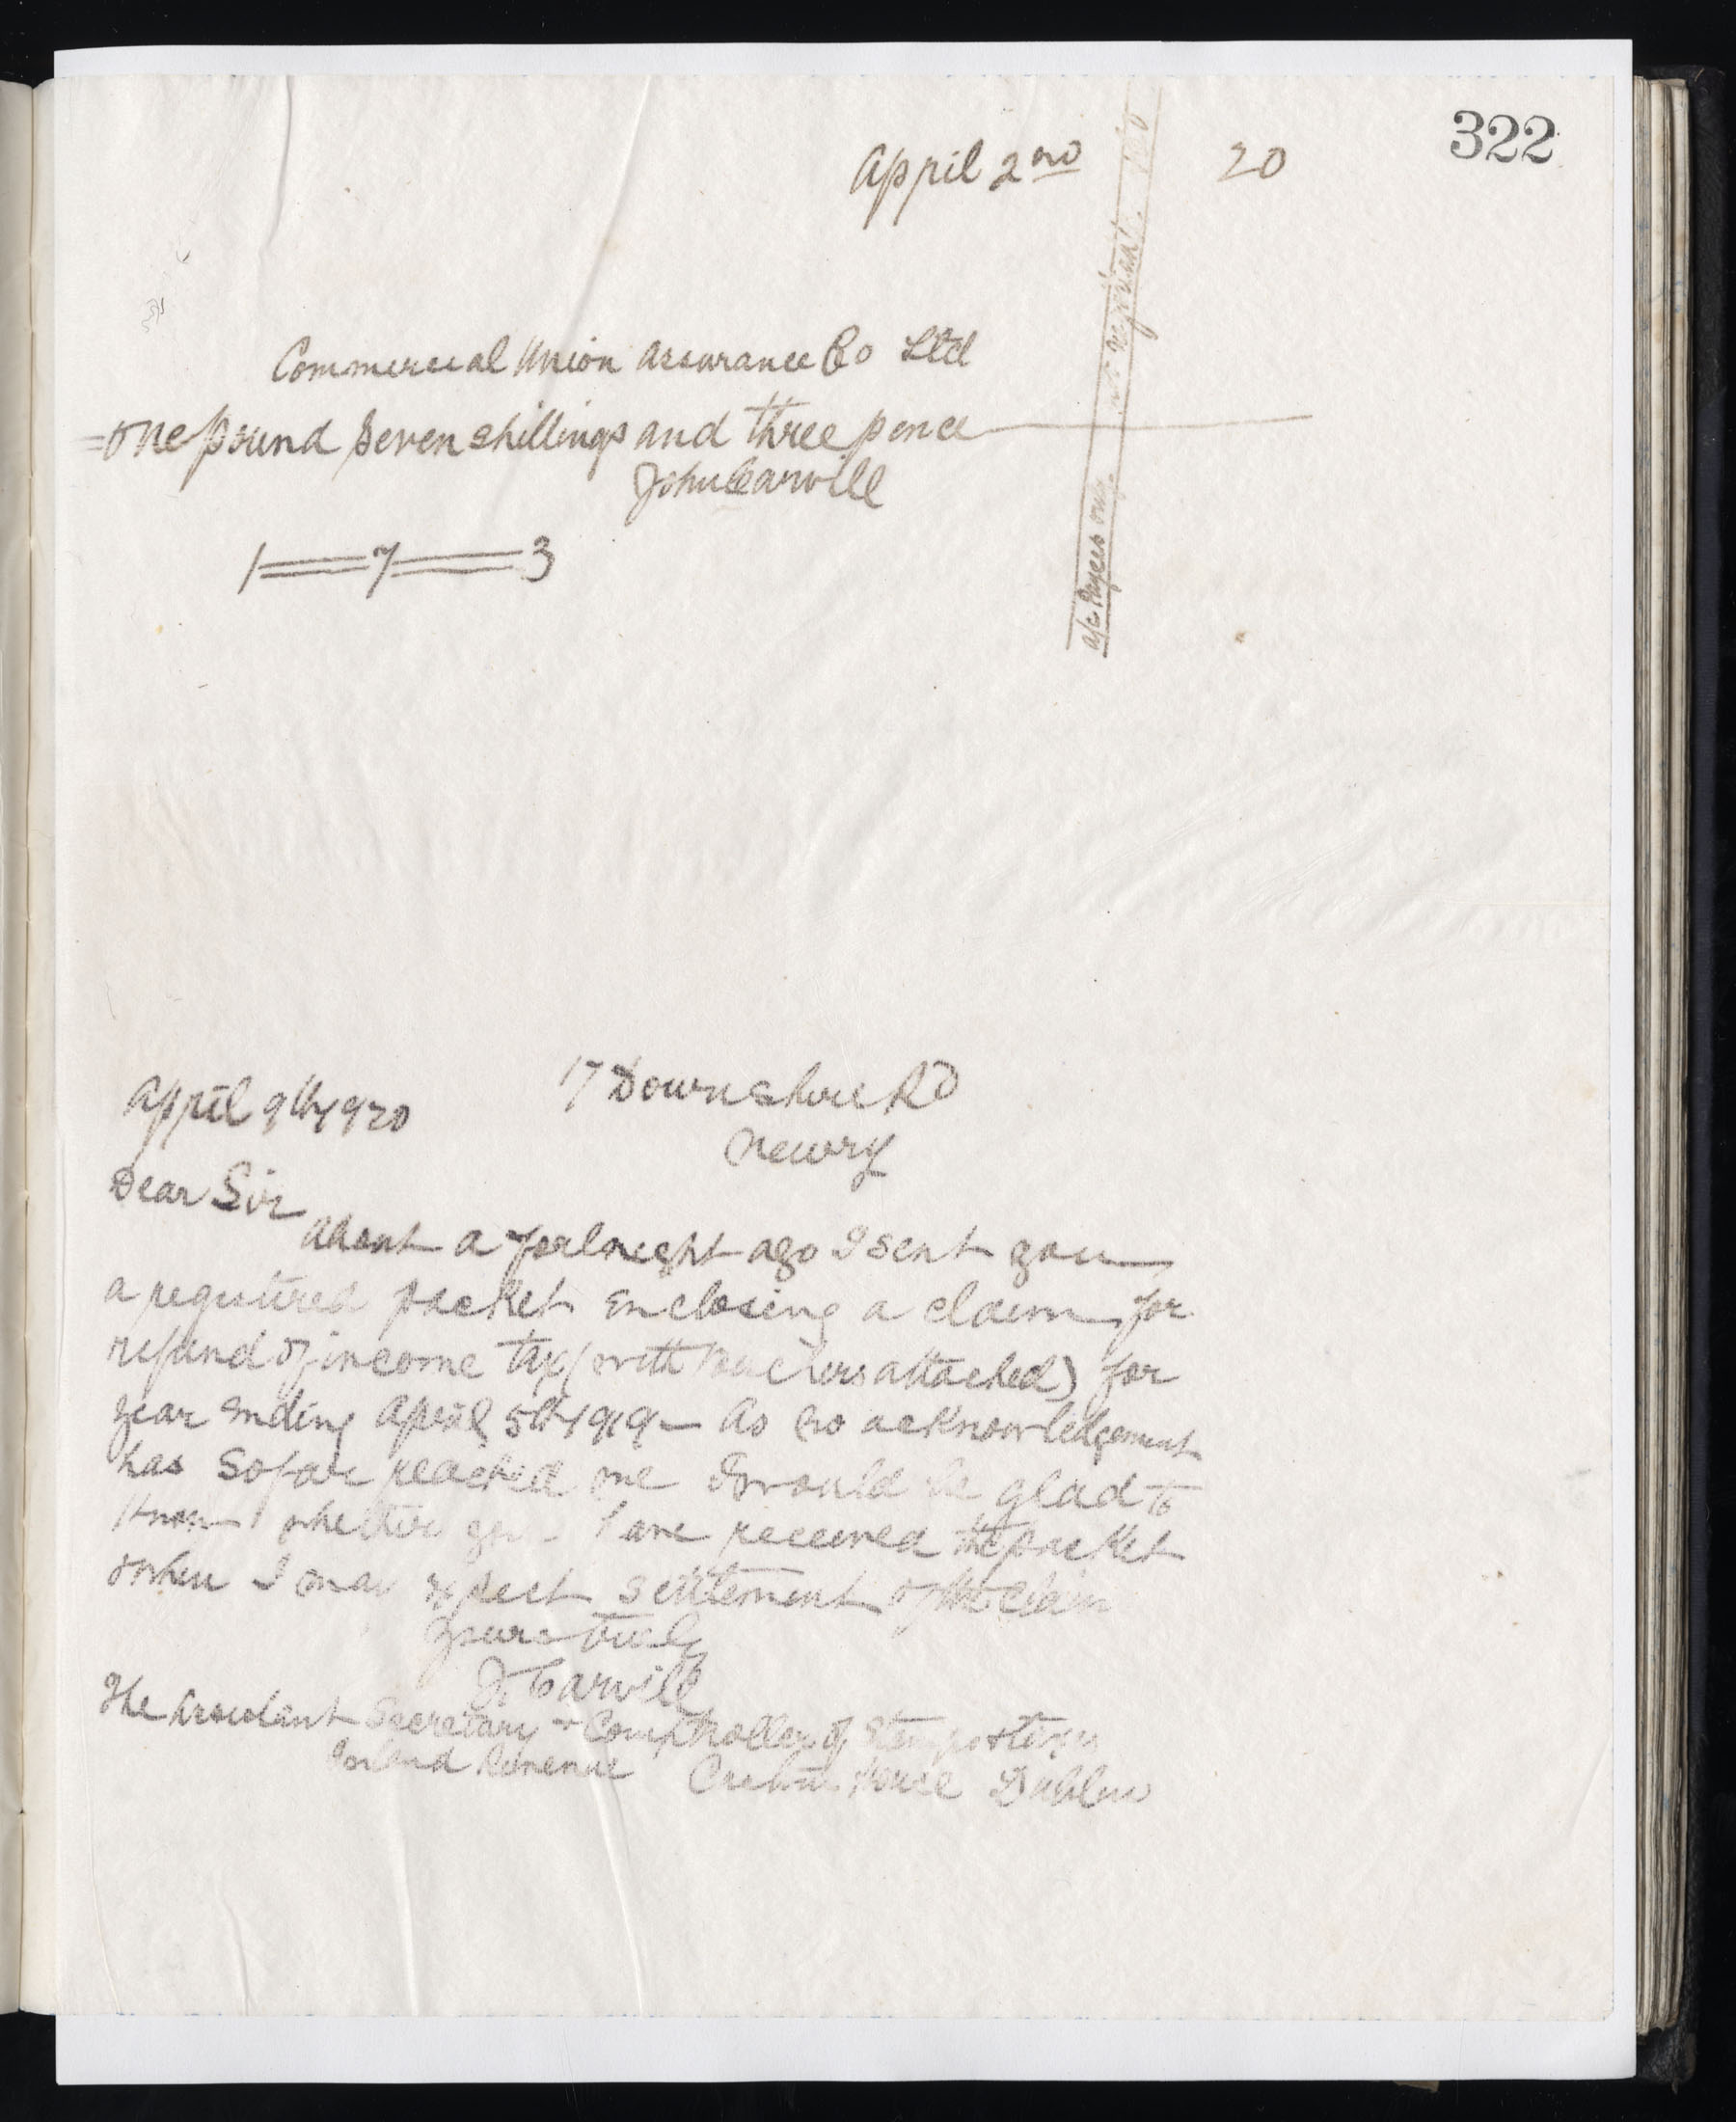 322
April 2nd 20
Commercial Union Assurance Co Ltd
one pound seven shillings and three pence
John Carvill
1 = 7 = 3
a/c Payees only not negotiable
17 Downshire Rd
April 9th 1920
Newry
Dear Sir
About a fortnight ago I sent you
a registered packet enclosing a claim for
refund of income tax (with vouchers attached) for
year ending April 5th 1919 - As no acknowledgement
has so far reached me I would be glad to
know whether you have received the packet
& when I may expect settlement of the claim
Yours truly
J Carvill
The Assistant Secretary & Comptroller of Stamps & taxes
Inland Revenue Custom House Dublin